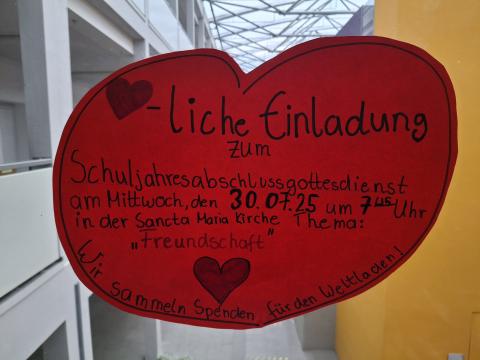 -liche Einladung
zum
Schuljahresabschlussgottesdienst
am Mittwoch, den 30.07.25 um 7⁴⁵ Uhr
in der Sancta Maria Kirche Thema:
„Freundschaft"
Wir sammeln Spenden für den Weltladen!